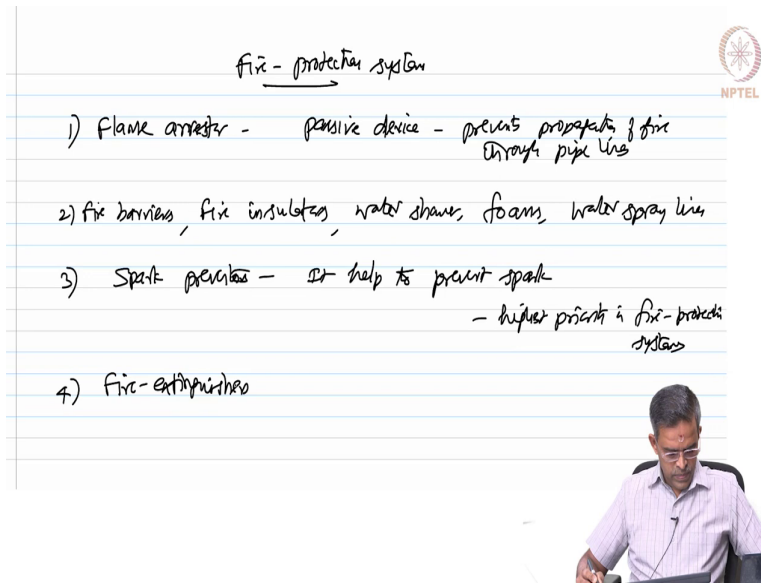 Fire - protection system
NPTEL
1) Flame arrester - passive device - prevents propagation of fire
through pipe lines
2) fire barriers, fire insulators, water shower, foams, water spray lines
3) Spark preventors - It help to prevent spark
- highest priority in fire-protection
systems
4) Fire-extinguishers